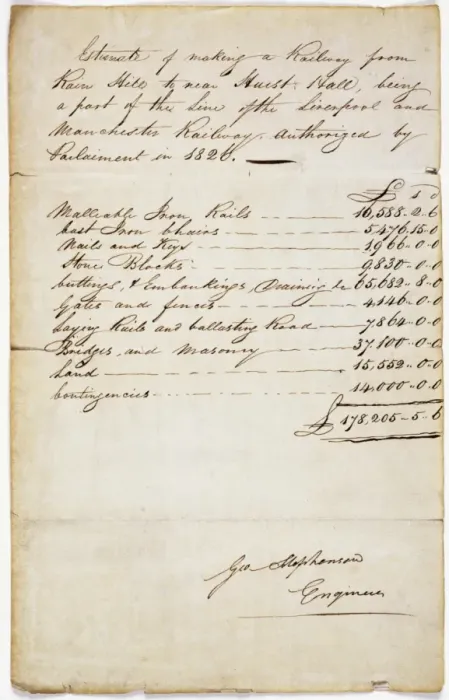 Estimate of making a Railway from
Rain Hill to near Hurst Hall, being
a part of the Line of the Liverpool and
Manchester Railway. Authorized by
Parlaiment in 1826.
£ s d
Malleable Iron Rails 16,588 - 2 - 6
Cast Iron Chairs 5,476, 15 - 0
Nails and Keys 1,966 - 0 - 0
Stone Blocks 9,830 - 0 - 0
Cuttings, & Embankings, Draining &c 65,682 - 8 - 0
Gates and fences 4,146 - 0 - 0
Laying Rails and ballasting Road 7,864 - 0 - 0
Bridges, and Masonry 37,100 - 0 - 0
Land 15,552 - 0 - 0
Contingencies 14,000 - 0 - 0
£ 178,205 - 5 - 6
Geo Stephenson
Engineer